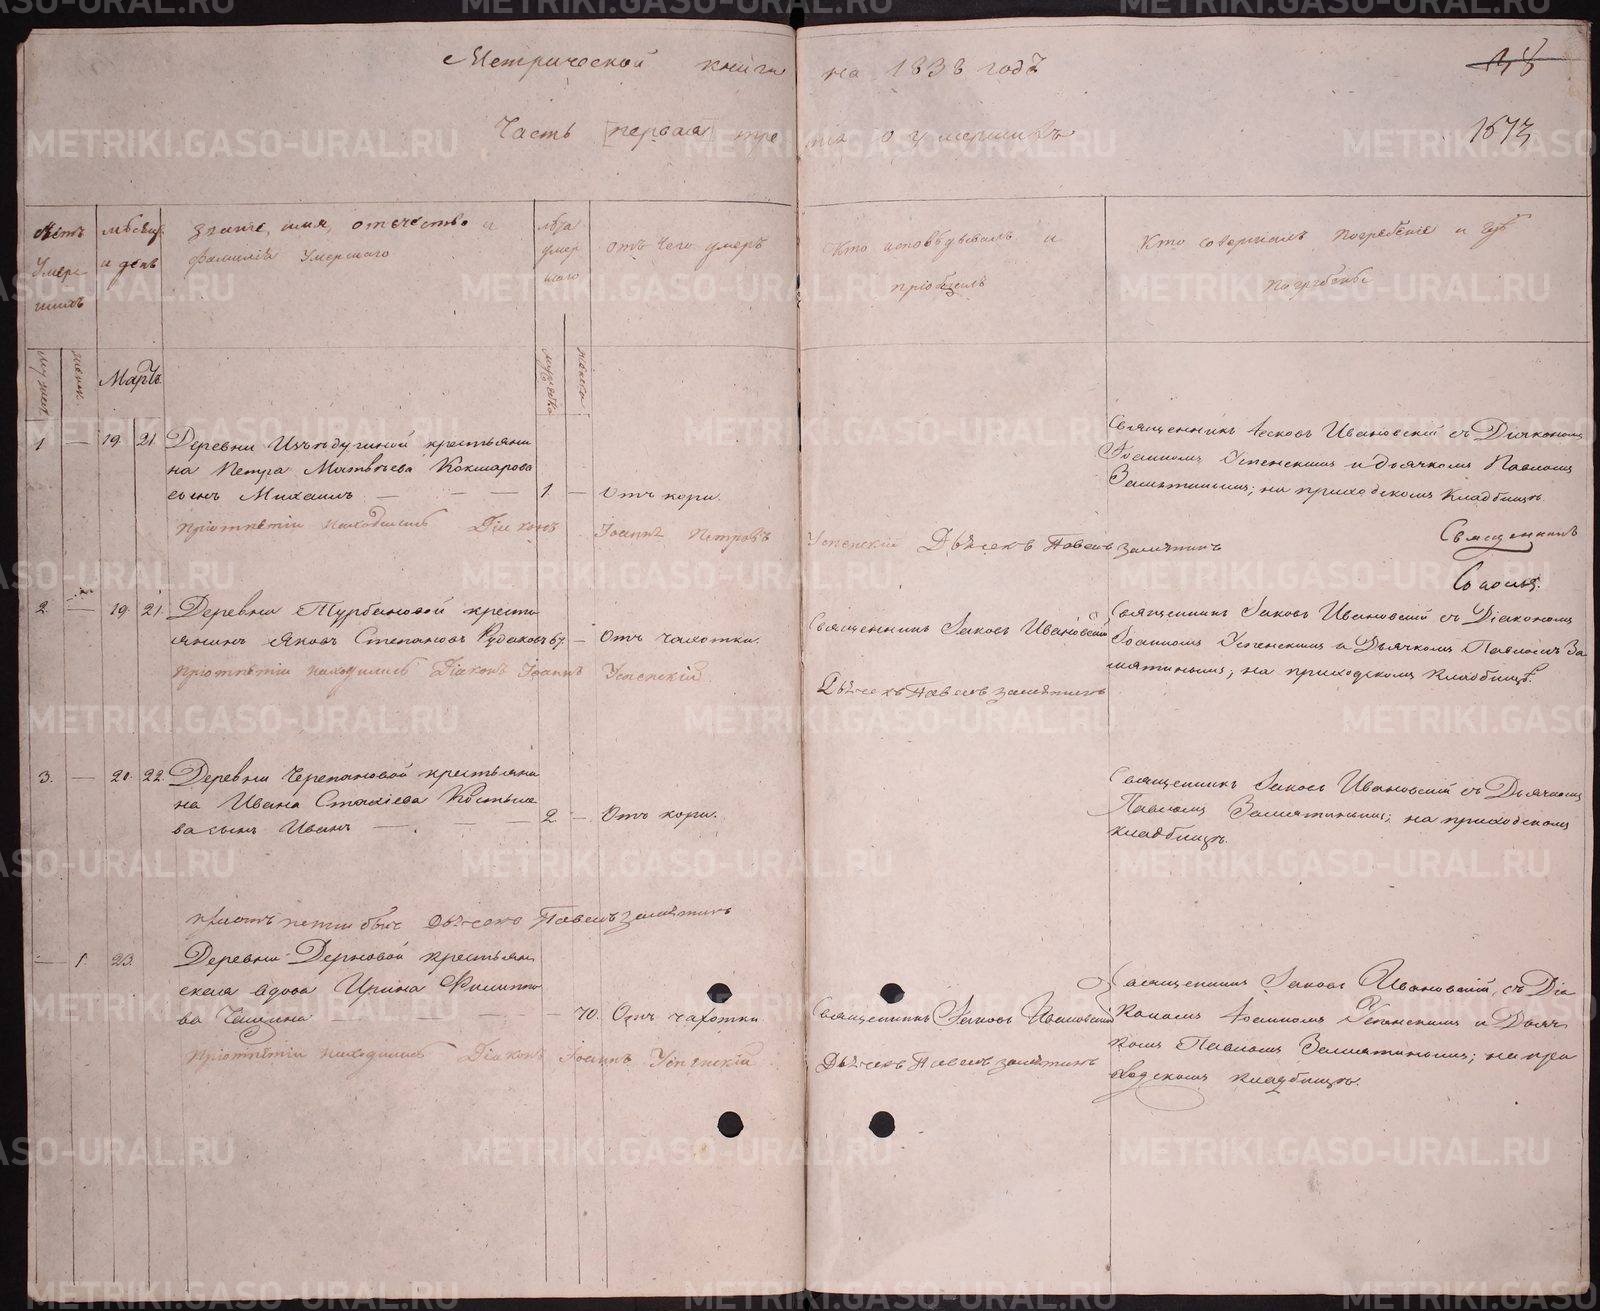 Метрической книги на 1838 годъ
38
Часть [первая] третія о умершихъ
1673
Счетъ умершихъ
мѣсяцъ и день
Званіе, имя, отечество и фамилія Умершаго
лѣта умершаго
отъ чего умеръ
Кто исповѣдывалъ и пріобщилъ
Кто совершалъ погребеніе и гдѣ погребены
мужеск
женск
Мартъ
мужеска
женска
1 — 19. 21. Деревни крестьяни
на Петра Матвѣева Кокшарова
сынъ Михаилъ — — — 1. — Отъ кори.
Священникъ Іаковъ Ивановскій съ Діакономъ
Іоанномъ Успенскимъ и дьячкомъ Павломъ
Замятинымъ; на приходскомъ кладбищѣ.
При отпѣтіи находились Діаконъ Іоаннъ Петровъ Успенскій Дьячекъ Павелъ Замятинъ
Священникъ
2. — 19. 21. Деревни Турбановой кресть
янинъ Яковъ Степановъ Рудаковъ 67. — Отъ чахотки.
Священникъ Іаковъ Ивановскій
Священникъ Іаковъ Ивановскій съ Діакономъ
Іоанномъ Успенскимъ и Дьячкомъ Павломъ За
мятинымъ; на приходскомъ кладбищѣ.
При отпѣтіи находились Діаконъ Іоаннъ Успенскій.
Дьячекъ Павелъ Замятинъ
3. — 20. 22. Деревни Черепановой крестьяни
на Ивана Стахіева Костыле
ва сынъ Иванъ — — — 2 — Отъ кори.
Священникъ Іаковъ Ивановскій съ Дьячкомъ
Павломъ Замятинымъ; на приходскомъ
кладбищѣ.
при отпетіи былъ Дьячекъ Павелъ Замятинъ
— 1. 23. Деревни Дерновой крестьян
ская вдова Ирина Филиппо
ва Чащина — — — — 70. Отъ чахотки.
Священникъ Іаковъ Ивановскій
Священникъ Іаковъ Ивановскій, съ Діа
кономъ Іоанномъ Успенскимъ и Дьяч
комъ Павломъ Замятинымъ; на при
ходскомъ кладбищѣ.
При отпѣтіи находились Діаконъ Іоаннъ Успенскій.
Дьячекъ Павелъ Замятинъ
METRIKI.GASO-URAL.RU